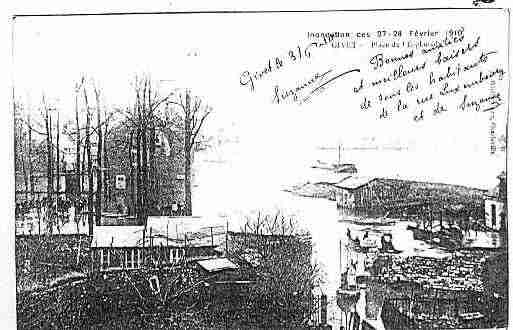 Inondation des 27-28 Février 1910
GIVET - Place de l'Esplanade
Givet le 3/6
Suzanne
Bonnes amitiés
et meilleurs baisers
de tous les habitants
de la rue Luxembourg
et de Suzanne